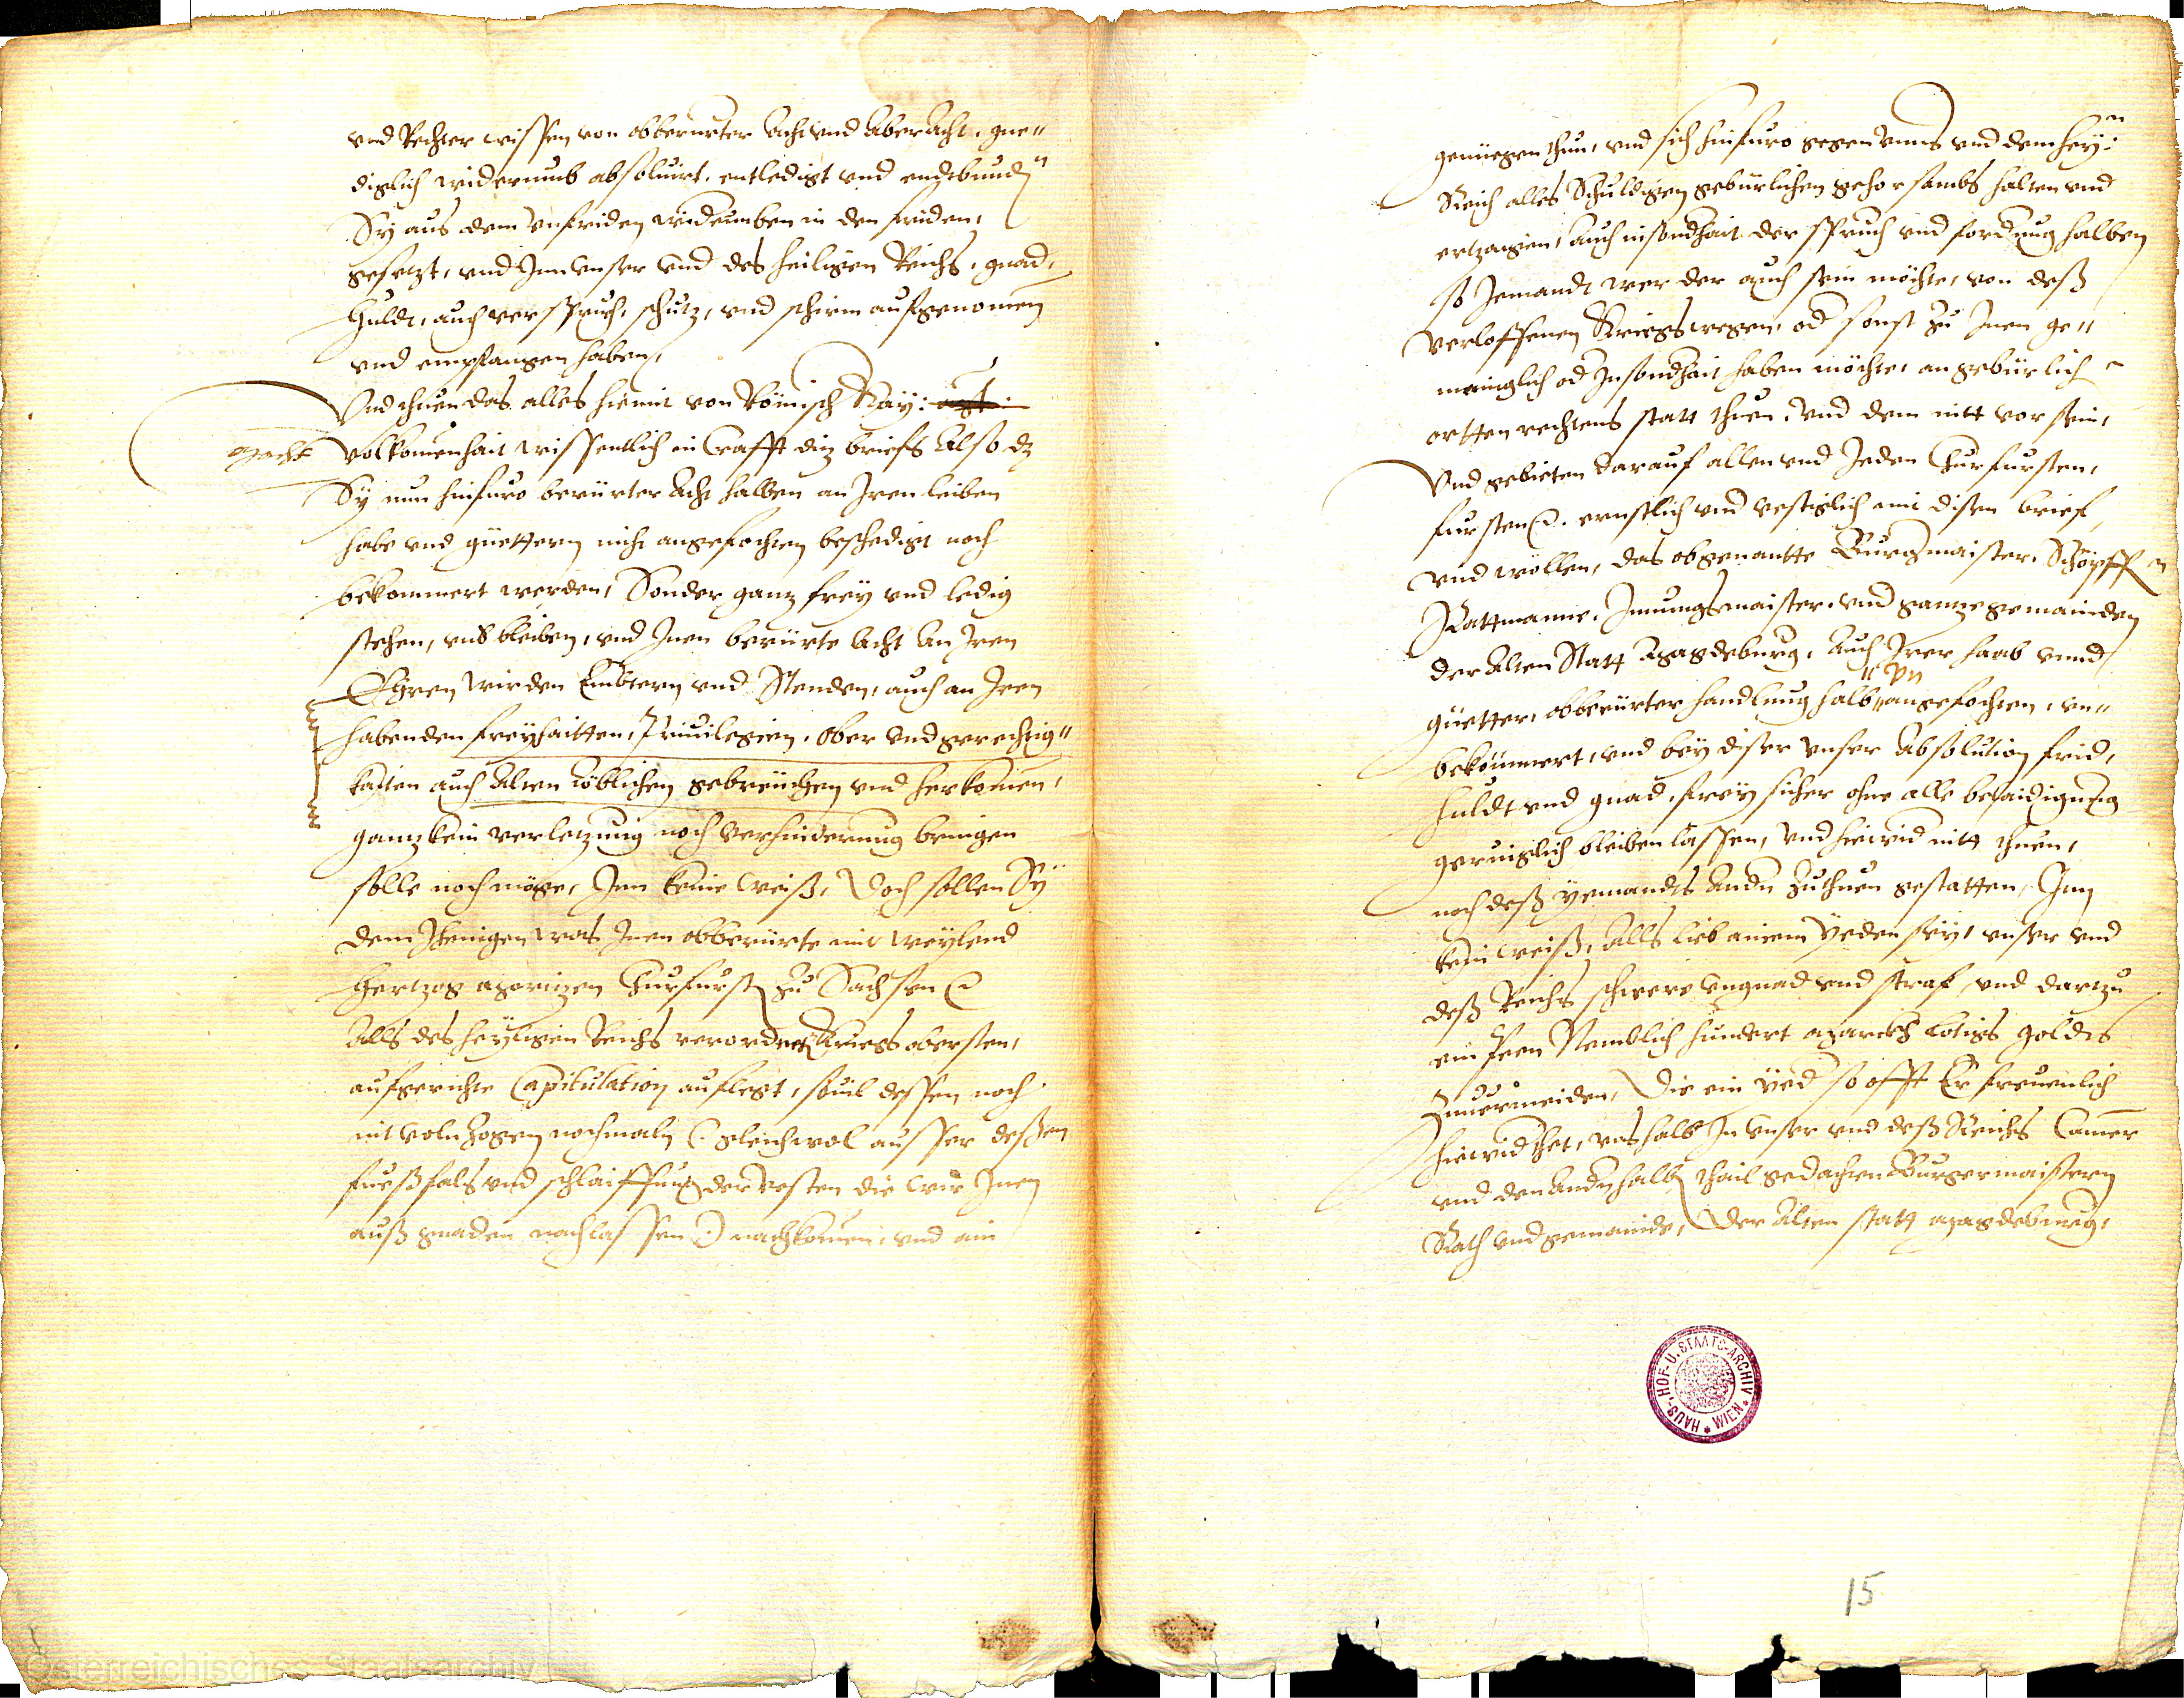 vnd Rechter wissen von obberurter Acht vnd Aberacht, gne"
diglich widerumb absoluirt, entledigt vnd endtbunden
Sy aus dem vnfriden widerumben in den friden,
gesetzt, vnd Inn vnser vnd des heiligen Reichs, gnad,
Huldt, auch verspruch, schutz, vnd schirm aufgenomen
vnd empfangen haben,
Vnd thuen das alles hiemit von Römisch Kay:
macht volkomenhait wissentlich in Crafft ditz briefs Also dz
Sy nun hinfuro berürter Acht halben an Iren leiben
habe vnd güettern nicht angefochten beschedigt noch
bekommert werden, Sonder ganz frey vnd ledig
stehen, vnd bleiben, vnd Inen berürte Acht An Iren
Ehren wirden Embtern vnd Stenden, auch an Iren
habenden freyhaitten, Priuilegien, Ober vnd gerechtig"
kaiten auch Alten löblichen gebreuchen vnd herkomen,
ganz kein verletzung noch verhinderung bringen
solle noch möge, Inn keine weiß, Doch sollen Sy
dem Jhenigen was Inen obberürte mit weylend
Hertzog Moritzen Churfurst zu Sachsen etc
Alls des heyligen Reichs verordneten Kriegs obersten,
aufgerichte Capitulation auflegt, souil dessen noch
nit voln zogen nochmaln (: gleichwol ausser dessen
fuessfals vnd schlaiffung der vesten die wir Inen
auß gnaden nachlassen :) nachkomen, vnd ain
genüegen thun, vnd sich hinfuro gegen vnns vnd dem hey:
Reich alles Schuldigen gebürlichen gehorsambs halten vnd
ertzaigen, auch insondhait der spruch vnd fordrung halben
so Jemandt wer der auch sein möchte, von deß
verloffenen Kriegs wegen, od sonst zu Inen ge"
mainglich od Insondhait haben möchte, an gebürlichen
ortten rechtens statt thuen, vnd dem nitt vor sein,
Vnd gebieten darauf allen vnd Jeden Churfursten,
fursten etc. ernstlich vnd vestiglich mit disem brief,
vnd wöllen, das obgenantte Burgmaister, Schöpffen
Rattmanne, Innungsmaister, vnd gantze gemainden
der Alten Statt Magdeburg, Auch Irer haab vnnd
güetter, obberürter handlung halb vn angefochten, vn"
bekömmert, vnd bey diser vnser Absolution frid,
huldt vnd gnad, frey sicher ohne alle belaidigung
geruiglich bleiben lassen, vnd hiewid nitt thuen,
noch deß yemandts Andn zuthuen gestatten, Inn
kein weiß, Alls lieb ainem yeden sey, vnser vnd
deß Reichs schwere vngnad vnd straf, vnd dartzu
ein peen Nemblich hundert March lötigs goldes
Zuuermeiden, Die ein yed so offt Er freuenlich
hiewid thet, vns halb In vnser vnd deß Reichs Camer
vnd den Andn halben thail gedachten Burgermaistern
Rath vnd gemainde, der Alten statt Magdeburg,
HAUS-, HOF- U. STAATS-ARCHIV * WIEN *
15
Österreichisches Staatsarchiv